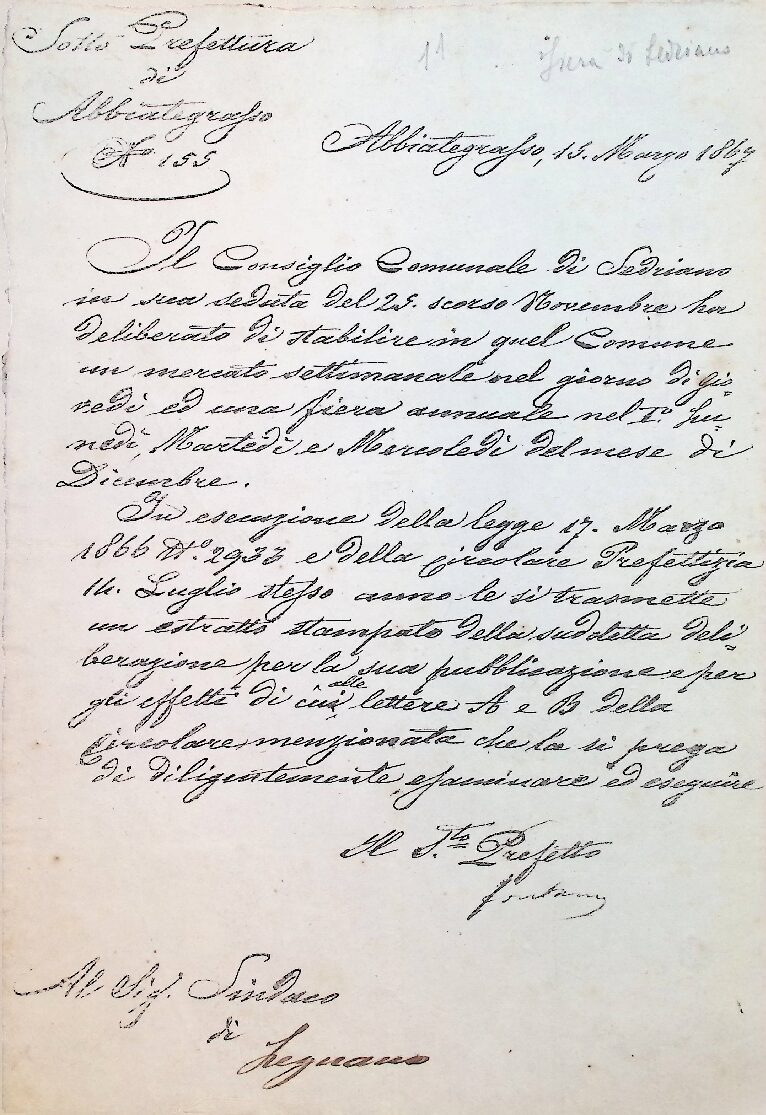 Sotto Prefettura
di
Abbiategrasso
N° 155
11 Fiera di Sedriano
Abbiategrasso, 15. Marzo 1867
Il Consiglio Comunale di Sedriano
in sua seduta del 25. scorso Novembre ha
deliberato di stabilire in quel Comune
un mercato settimanale nel giorno di gio-
vedì ed una fiera annuale nel 1.° Lu-
nedì, Martedì e Mercoledì del mese di
Dicembre.
In esecuzione della legge 17. Marzo
1866 N.° 2933 e della Circolare Prefettizia
14. Luglio stesso anno le si trasmette
un estratto stampato della sudetta deli-
berazione per la sua pubblicazione e per
gli effetti di cui alle lettere A e B della
Circolare menzionata che la si prega
di diligentemente esaminare ed eseguire
Il S.to Prefetto
Al Sig. Sindaco
di
Legnano